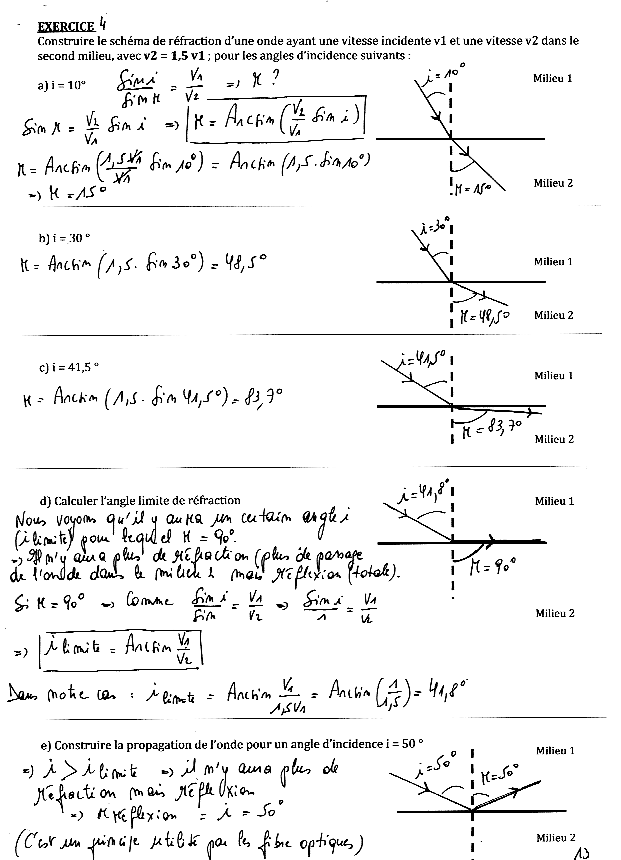 EXERCICE 4
Construire le schéma de réfraction d'une onde ayant une vitesse incidente v1 et une vitesse v2 dans le
second milieu, avec v2 = 1,5 v1 ; pour les angles d'incidence suivants :
a) i = 10° Sin i / Sin r = V1 / V2 => r ?
i = 10° Milieu 1
Sin r = V2/V1 Sin i => r = Arcsin (V2/V1 Sin i)
r = Arcsin (1,5 V1/V1 Sin 10°) = Arcsin (1,5 . Sin 10°)
=> r = 15°
r = 15° Milieu 2
b) i = 30 °
i = 30° Milieu 1
r = Arcsin (1,5 . Sin 30°) = 48,5°
r = 48,5° Milieu 2
c) i = 41,5 °
i = 41,5° Milieu 1
r = Arcsin (1,5 . Sin 41,5°) = 83,7°
r = 83,7° Milieu 2
d) Calculer l'angle limite de réfraction
i = 41,8° Milieu 1
Nous voyons qu'il y aura un certain angle i
(i limite) pour lequel r = 90°.
=> Il n'y aura plus de réfraction (plus de passage
de l'onde dans le milieu 2 mais réflexion (totale).
r = 90°
Si r = 90° => Comme Sin i / Sin = V1 / V2 => Sin i / 1 = V1 / V2
Milieu 2
=> i limite = Arcsin V1/V2
Dans notre cas : i limite = Arcsin V1 / 1,5V1 = Arcsin (1/1,5) = 41,8°
e) Construire la propagation de l'onde pour un angle d'incidence i = 50 °
i = 50° r = 50° Milieu 1
=> i > i limite => il n'y aura plus de
réfraction mais réflexion
=> r réflexion = i = 50°
(C'est un principe utilité par les fibre optiques)
Milieu 2
13